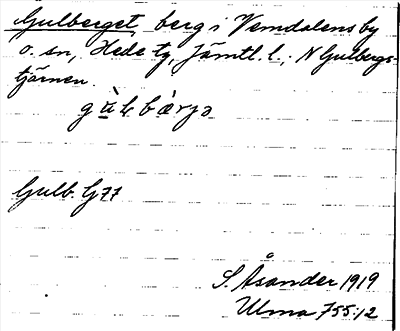 Gulberget, berg i Vemdalens by
o. sn, Hede tg, Jämtl. l.; N Gulbergs-
tjärnen.
Gulb. G 77
S. Åsander 1919
Ulma 755:12